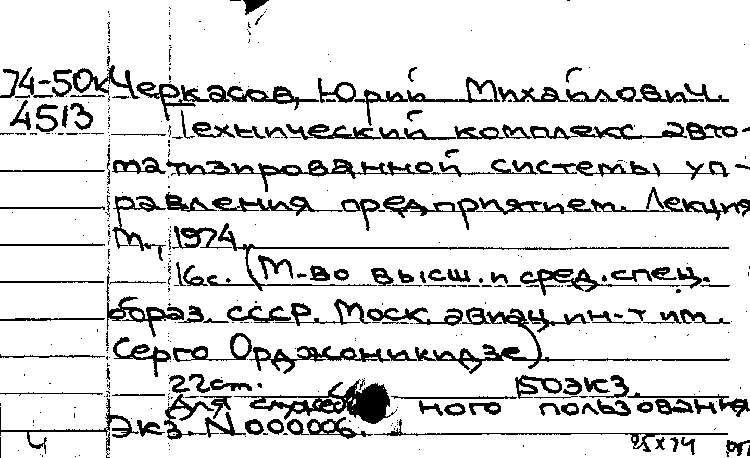 74-50к Черкасов, Юрий Михайлович.
4513 Технический комплекс авто-
матизированной системы уп-
равления предприятием. Лекция
М., 1974.
16с. (М-во высш. и сред. спец.
образ. СССР. Моск. авиац. ин-т им.
Серго Орджоникидзе).
22см. 150экз.
Для служебного пользования
Экз. N 000006.
4 25х74